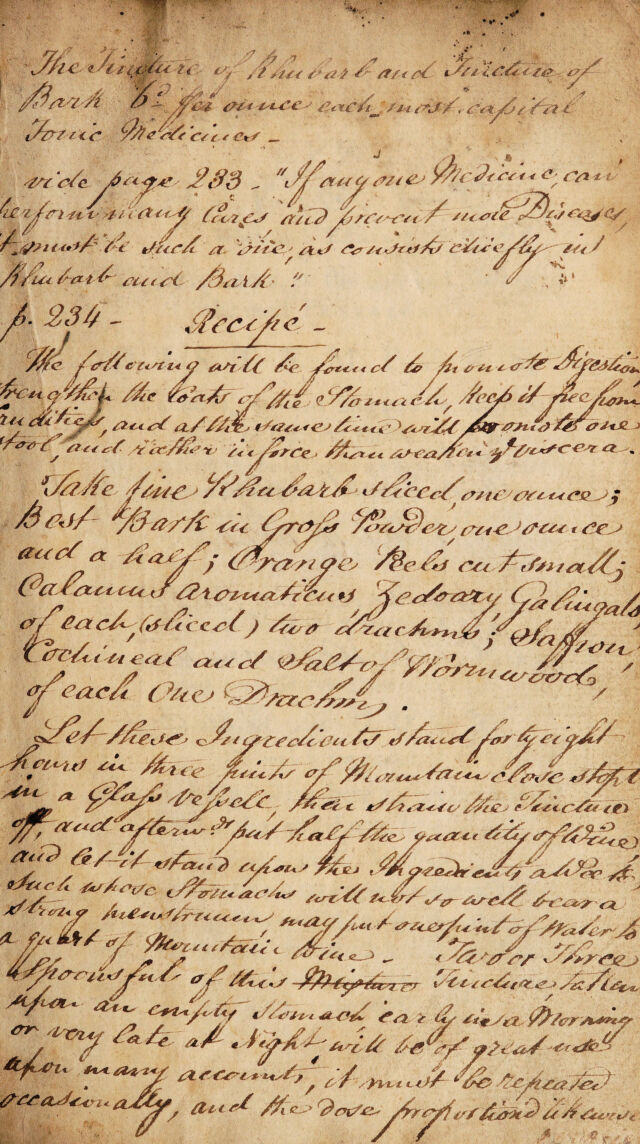 The Tincture of Rhubarb and Tincture of
Bark 6d per ounce each most capital
Tonic Medicines -
vide page 233 - "If any one Medicine, can
perform many Cures, and prevent more Diseases,
it must be such a one, as consists chiefly in
Rhubarb and Bark"
p. 234 - Recipé -
The following will be found to promote Digestion
strengthen the Coats of the Stomach, keep it free from
Crudities, and at the same time will promote one
stool, and rather inforce than weaken ye viscera.
Take fine Rhubarb sliced, one ounce;
Best Bark in Gross Powder, one ounce
and a half; Orange Peels cut small;
Calamus Aromaticus, Zedoary, Galingals,
of each, (sliced) two drachms; Saffron,
Cochineal and Salt of Wormwood,
of each One Drachm,.
Let these Ingredients stand forty eight
hours in three pints of Mountain close stopt
in a Glass vessell, then strain the Tincture
off, and afterwds put half the quantity of Wine
and let it stand upon the Ingredients a Week
such whose Stomachs will not so well bear a
strong menstruum may put one pint of Water to
a quart of Mountain Wine - Two or Three
Spoonsful of this Mixture Tincture, taken
upon an empty Stomach early in a Morning
or very late at Night will be of great use
upon many accounts, it must be repeated
occasionally, and the dose proportiond likewise